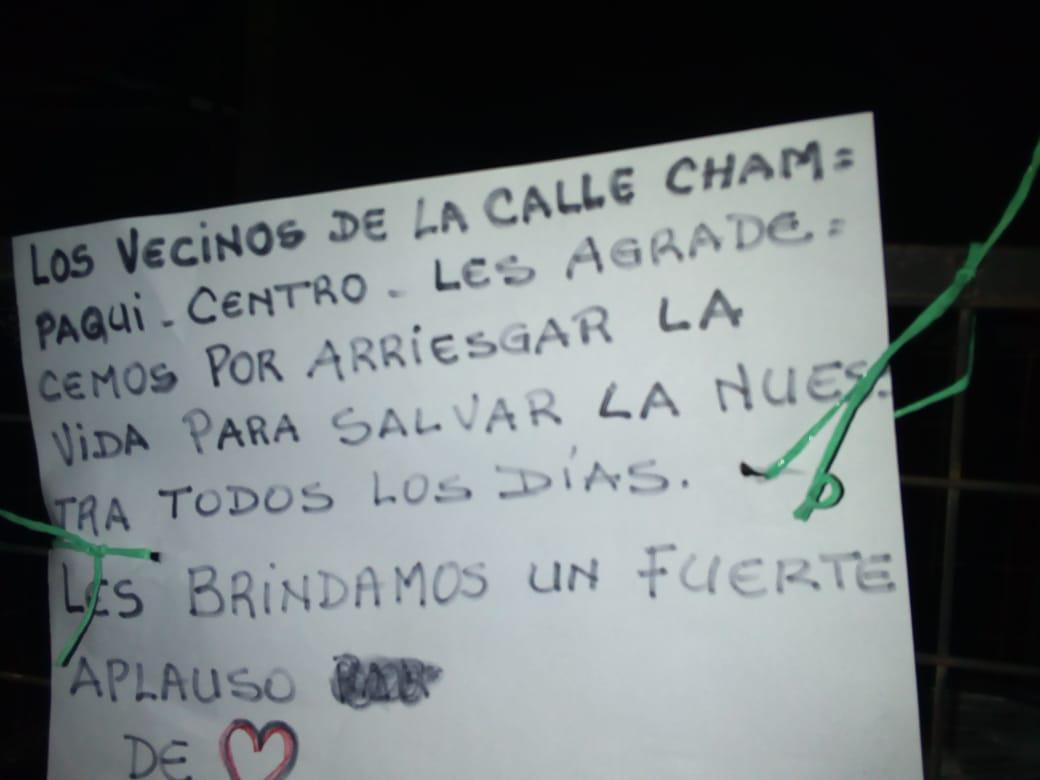 LOS VECINOS DE LA CALLE CHAM=
PAQUI - CENTRO - LES AGRADE=
CEMOS POR ARRIESGAR LA
VIDA PARA SALVAR LA NUES=
TRA TODOS LOS DÍAS.
LES BRINDAMOS UN FUERTE
APLAUSO
DE ♡